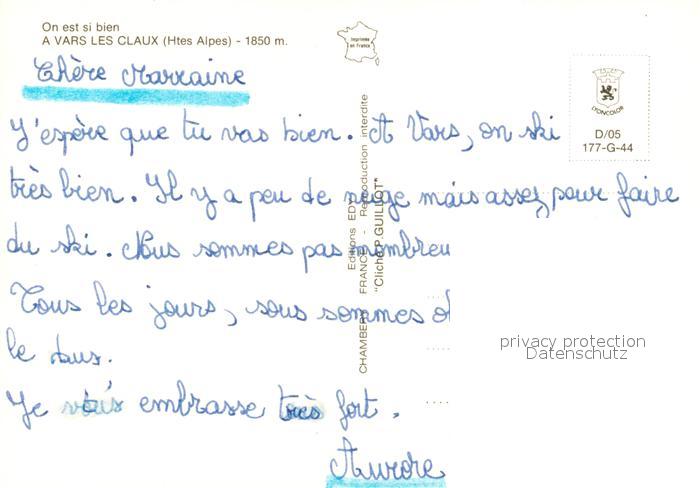 On est si bien
A VARS LES CLAUX (Htes Alpes) - 1850 m.
Imprimée en France
LYONCOLOR
D/05
177-G-44
Chère Marraine
J'espère que tu vas bien. A Vars, on ski
très bien. Il y a peu de neige mais assez pour faire
du ski. Nous sommes pas nombreu
Tous les jours, sous sommes d
le bus.
Je vous embrasse très fort.
Aurore
Editions EDY
CHAMBERY FRANCE - Reproduction interdite
"Cliché P. GUILLOT"
privacy protection
Datenschutz